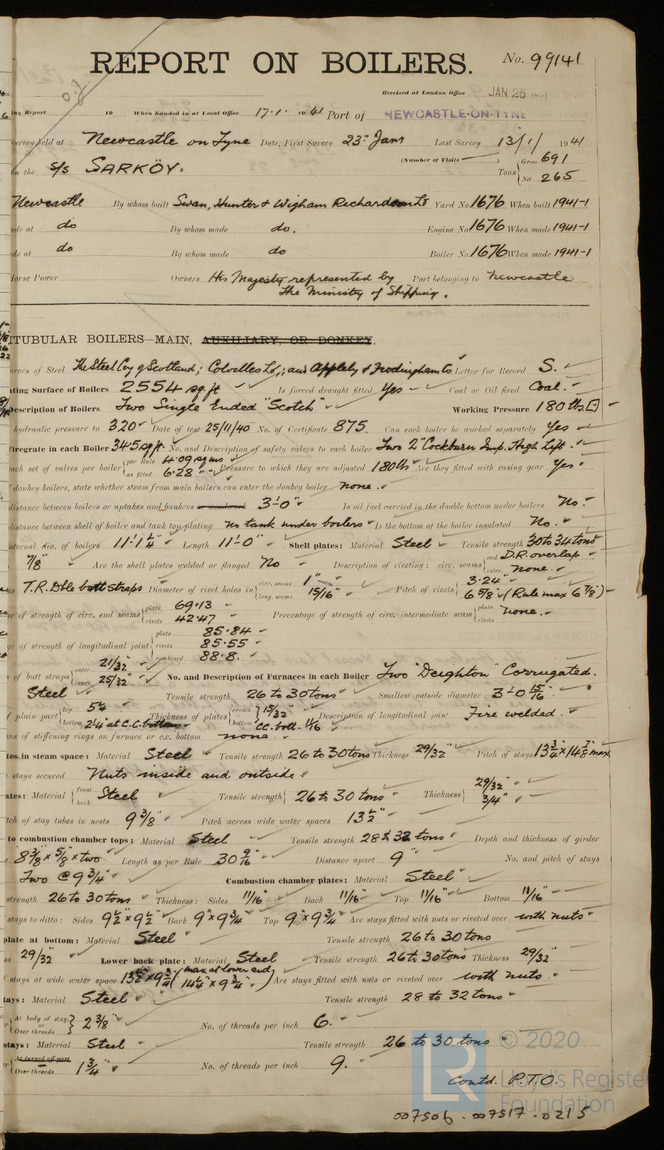 REPORT ON BOILERS.
No. 99141
Received at London Office JAN 25
ing Report 19 When handed in at Local Office 17.1. 1941 Port of NEWCASTLE-ON-TYNE
Survey held at Newcastle on Tyne Date, First Survey 23rd Jany Last Survey 13/1/ 1941
(Number of Visits)
on the S/S SARKÖY.
Tons { Gross 691
Net 265
Newcastle By whom built Swan, Hunter & Wigham Richardson Ld Yard No. 1676 When built 1941-1
de at do By whom made do. Engine No. 1676 When made 1941-1
de at do By whom made do Boiler No. 1676 When made 1941-1
Horse Power Owners His Majesty represented by the Ministry of Shipping. Port belonging to Newcastle
ITUBULAR BOILERS—MAIN, AUXILIARY, OR DONKEY.
urers of Steel The Steel Coy of Scotland; Colvilles Ld,; and Appleby & Frodingham Co. Letter for Record S.
ating Surface of Boilers 2554 sq.ft Is forced draught fitted Yes Coal or Oil fired Coal.
Description of Boilers Two Single Ended "Scotch" Working Pressure 180 lbs
hydraulic pressure to 320 Date of test 25/11/40 No. of Certificate 875. Can each boiler be worked separately Yes
Firegrate in each Boiler 34.5 sq.ft No. and Description of safety valves to each boiler Two 2" Cockburn Imp. High Lift.
each set of valves per boiler { per Rule 4.09 sq ins
as fitted 6.28 " " Pressure to which they are adjusted 180 lbs Are they fitted with easing gear Yes
donkey boilers, state whether steam from main boilers can enter the donkey boiler none.
distance between boilers or uptakes and bunkers 3'-0" Is oil fuel carried in the double bottom under boilers No.
distance between shell of boiler and tank top plating no tank under boilers Is the bottom of the boiler insulated No.
nternal dia. of boilers 11'-1¼" Length 11'-0" Shell plates: Material Steel Tensile strength 30 to 34 tons
7/8" Are the shell plates welded or flanged No Description of riveting: circ. seams { end D.R. overlap
inter. none.
T.R. Dble butt straps Diameter of rivet holes in { circ. seams 1"
long. seams 15/16" Pitch of rivets { 3.24"
6 5/8" (Rule max 6 7/8)
ge of strength of circ. end seams { plate 69.13
rivets 42.47 Percentage of strength of circ. intermediate seam { plate
rivets none.
ge of strength of longitudinal joint { plate 85.84
rivets 85.55
combined 88.8.
of butt straps { outer 21/32"
inner 25/32" No. and Description of Furnaces in each Boiler Two "Deighton" Corrugated.
Steel Tensile strength 26 to 30 tons Smallest outside diameter 3'-0 15/16"
f plain part { top 5/4
bottom 2¼ at C.C. bottom Thickness of plates { crown 15/32"
bottom CC. bott. 11/16 Description of longitudinal joint Fire welded.
ons of stiffening rings on furnace or c.c. bottom none.
tes in steam space: Material Steel Tensile strength 26 to 30 tons Thickness 29/32" Pitch of stays 13¾" x 14⅞ max
stays secured Nuts inside and outside
ates: Material { front
back Steel Tensile strength 26 to 30 tons Thickness { 29/32"
3/4"
tch of stay tubes in nests 9 3/8" Pitch across wide water spaces 13½"
to combustion chamber tops: Material Steel Tensile strength 28 to 32 tons Depth and thickness of girder
8 3/8 x 5/8 x two Length as per Rule 30 9/16 Distance apart 9" No. and pitch of stays
Two @ 9¾" Combustion chamber plates: Material Steel
strength 26 to 30 tons Thickness: Sides 11/16" Back 11/16" Top 11/16" Bottom 11/16"
stays to ditto: Sides 9½" x 9½" Back 9" x 9¾" Top 9" x 9¾" Are stays fitted with nuts or riveted over with nuts
plate at bottom: Material Steel Tensile strength 26 to 30 tons
29/32" Lower back plate: Material Steel Tensile strength 26 to 30 tons Thickness 29/32"
f stays at wide water space 13½" x 9¾" (max at lower end 14¼" x 9¾") Are stays fitted with nuts or riveted over with nuts
tays: Material Steel Tensile strength 28 to 32 tons
{ At body of stay,
Over threads 2 3/8" No. of threads per inch 6.
stays: Material Steel Tensile strength 26 to 30 tons
{ At turned off part
Over threads 1¾" No. of threads per inch 9.
Contd. P.T.O.
© 2020
LR Lloyd's Register
Foundation
007506-007517-0215